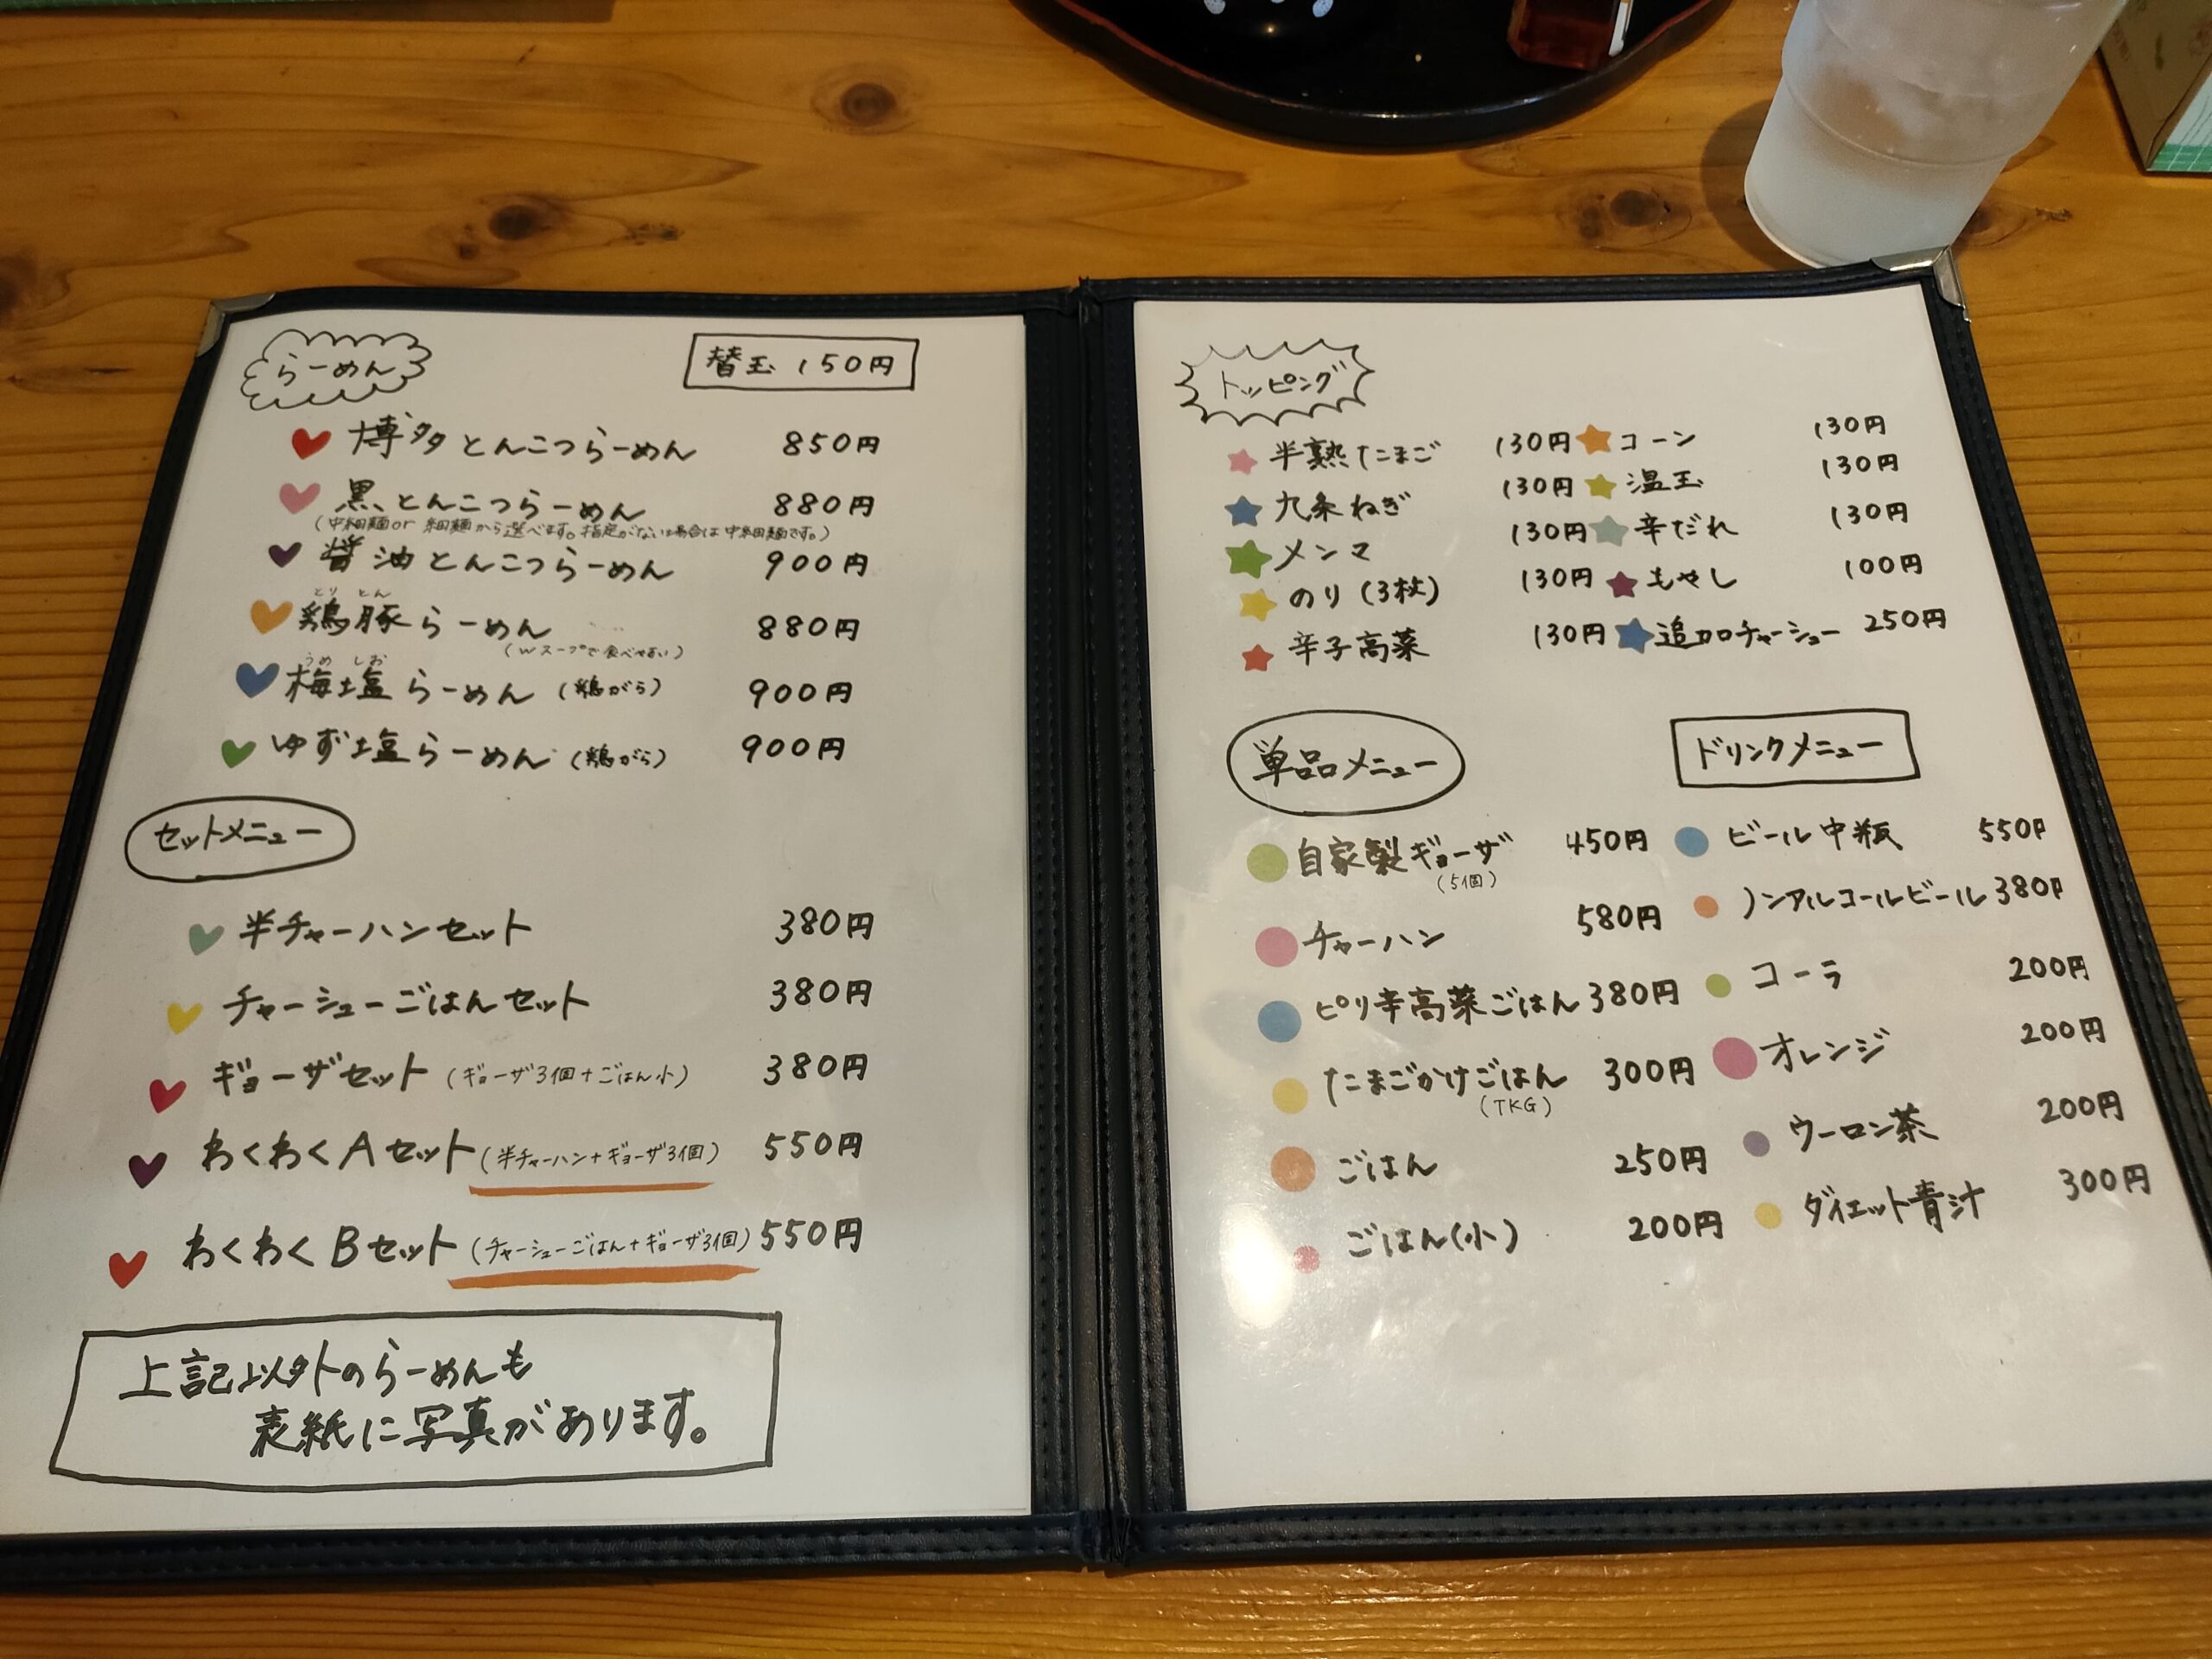 らーめん
替玉 150円
博多とんこつらーめん 850円
黒とんこつらーめん 880円
(中細麺or 細麺から選べます。指定がない場合は中細麺です。)
醤油とんこつらーめん 900円
とり とん
鶏豚らーめん 880円
(Wスープで食べやすい)
うめ しお
梅塩らーめん (鶏がら) 900円
ゆず塩らーめん (鶏がら) 900円
セットメニュー
半チャーハンセット 380円
チャーシューごはんセット 380円
ギョーザセット (ギョーザ3個+ごはん小) 380円
わくわくAセット(半チャーハン+ギョーザ3個) 550円
わくわくBセット(チャーシューごはん+ギョーザ3個) 550円
上記以外のらーめんも
表紙に写真があります。
トッピング
半熟たまご 130円
九条ねぎ 130円
メンマ 130円
のり(3枚) 130円
辛子高菜 130円
コーン 130円
温玉 130円
辛だれ 130円
もやし 100円
追加チャーシュー 250円
単品メニュー
自家製ギョーザ 450円
(5個)
チャーハン 580円
ピリ辛高菜ごはん 380円
たまごかけごはん 300円
(TKG)
ごはん 250円
ごはん(小) 200円
ドリンクメニュー
ビール中瓶 550円
ノンアルコールビール 380円
コーラ 200円
オレンジ 200円
ウーロン茶 200円
ダイエット青汁 300円